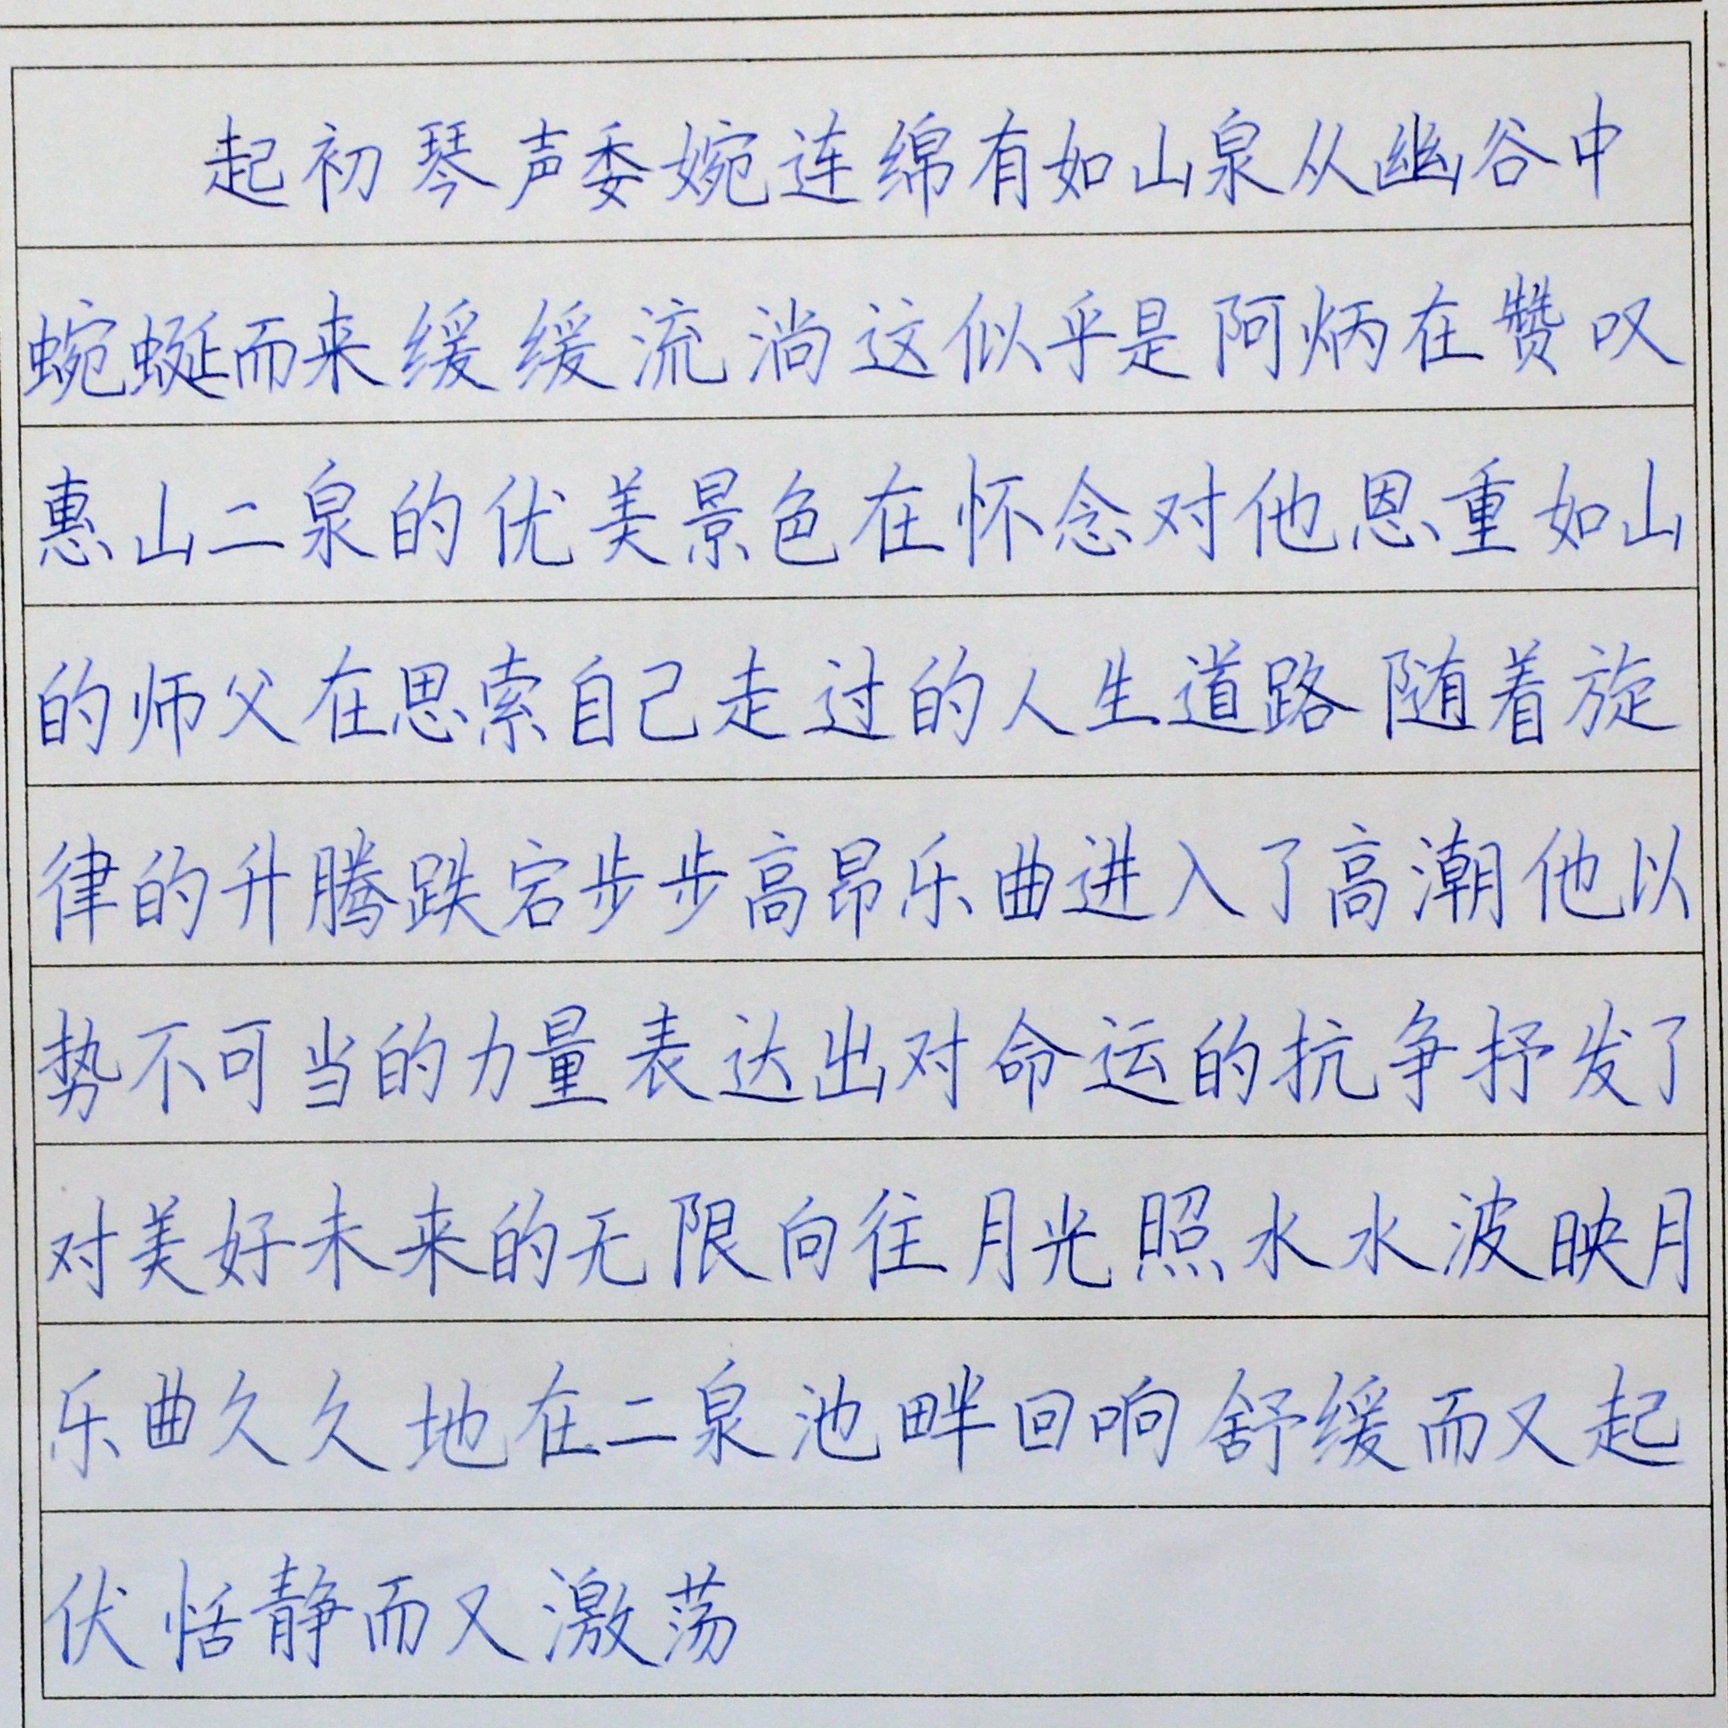 起初琴声委婉连绵有如山泉从幽谷中
蜿蜒而来缓缓流淌这似乎是阿炳在赞叹
惠山二泉的优美景色在怀念对他恩重如山
的师父在思索自己走过的人生道路随着旋
律的升腾跌宕步步高昂乐曲进入了高潮他以
势不可当的力量表达出对命运的抗争抒发了
对美好未来的无限向往月光照水水波映月
乐曲久久地在二泉池畔回响舒缓而又起
伏恬静而又激荡